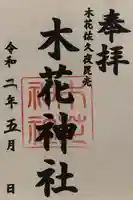 奉拝
木花佐久夜毘売
木花神社
令和二年五月 日